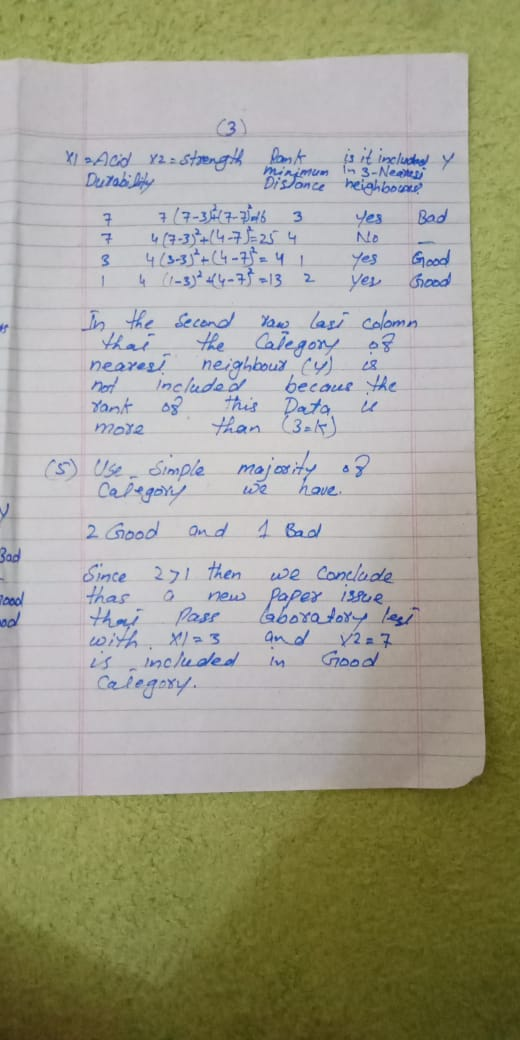 (3)
X1 = Acid X2 = Strength Rank is it included Y
Durability minimum In 3-Nearest
Distance neighbours?
7 7 (7-3)²+(7-7)²=16 3 Yes Bad
7 4 (7-3)²+(4-7)²=25 4 No —
3 4 (3-3)²+(4-7)² = 4 1 Yes Good
1 4 (1-3)²+(4-7)² =13 2 Yes Good
In the Second raw last colomn
that the Category of
nearest neighbour (Y) is
not included becaus the
rank of this Data is
more than (3=k)
(5) Use Simple majority of
Category we have.
2 Good and 1 Bad
Since 2>1 then we Conclude
thas a new paper issue
that Pass laboratory test
with X1=3 and X2=7
is included in Good
Category.
Y
Bad
—
Good
ood